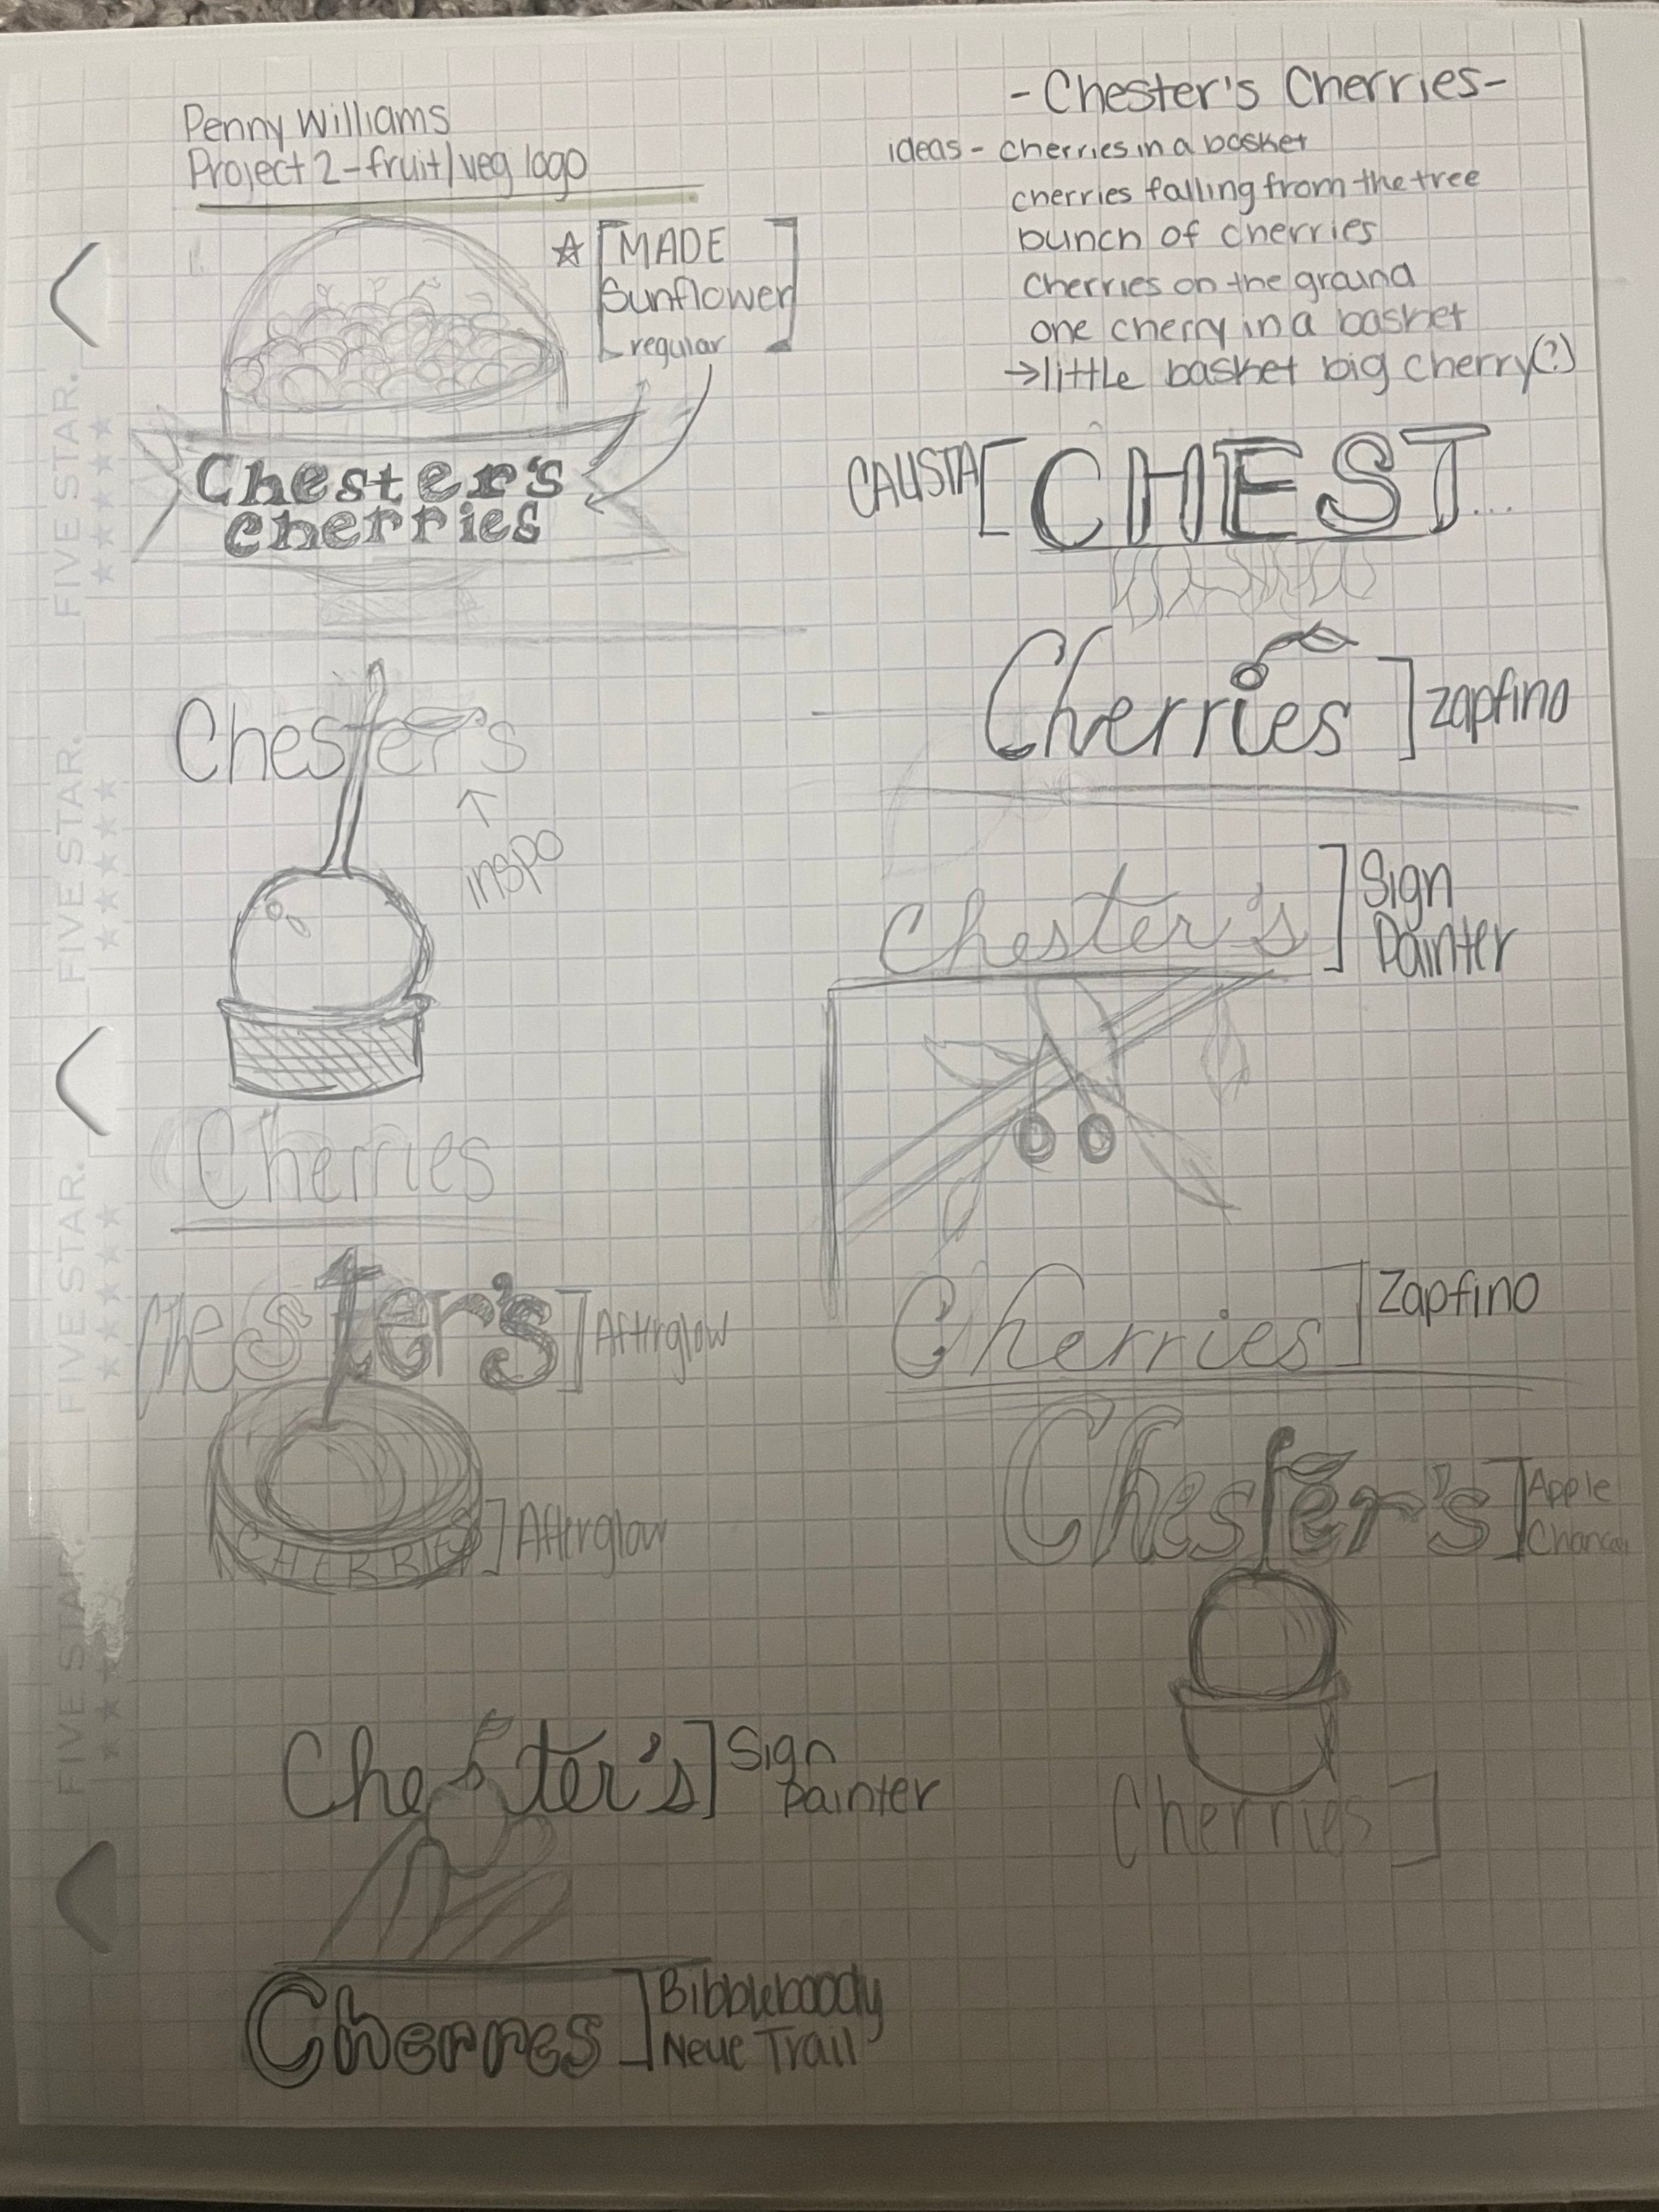 Penny Williams
Project 2 - fruit/veg logo
- Chester's Cherries -
ideas - cherries in a basket
cherries falling from the tree
bunch of cherries
cherries on the ground
one cherry in a basket
→ little basket big cherry(?)
☆ [MADE]
Sunflower
regular
Chester's
cherries
CALISTA [CHEST...
Cherries ] Zapfino
Chester's
↑
inspo
Cherries
Chester's ] Sign
Painter
Cherries ] Zapfino
Chester's ] Afterglow
CHERRIES ] Afterglow
Chester's ] Apple
Cherries ]
Chester's ] Sign
Painter
Cherres ]
Neue Trail
FIVE STAR.
FIVE STAR.
FIVE STAR.
FIVE STAR.